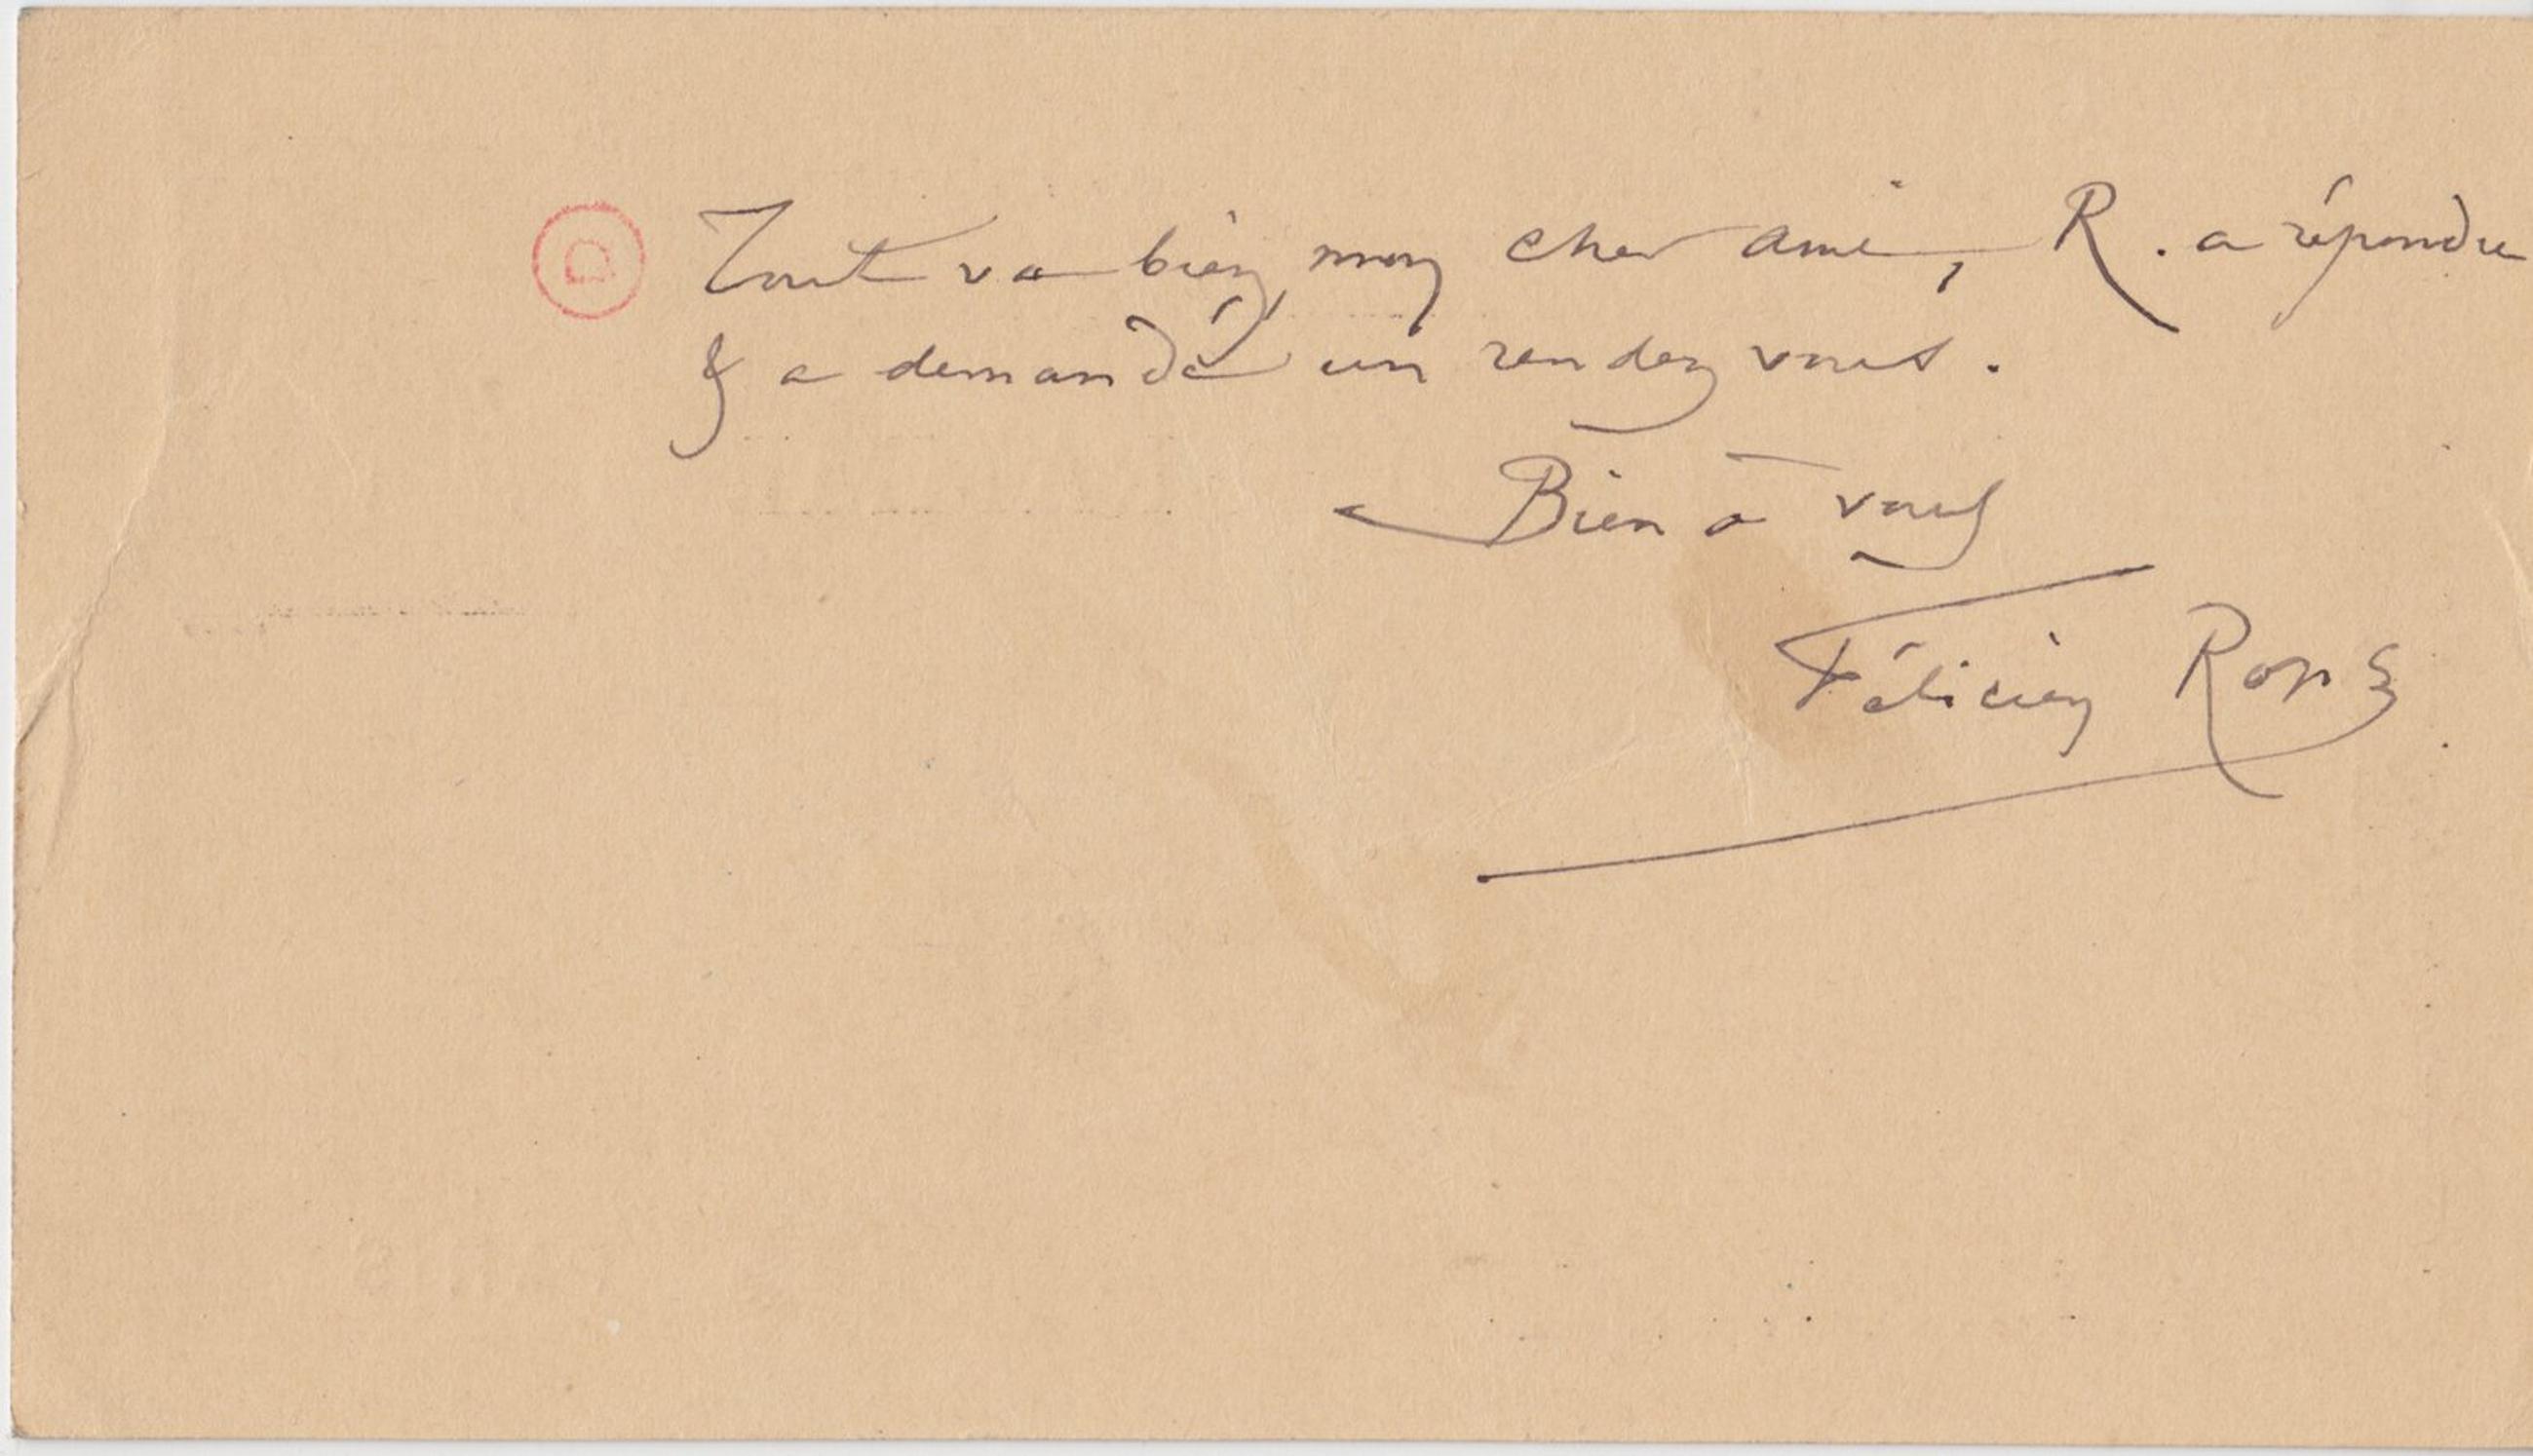 D Tout va bien, mon cher ami, R. a répondu
& a demandé un rendez vous.
Bien à vous
Félicien Rops